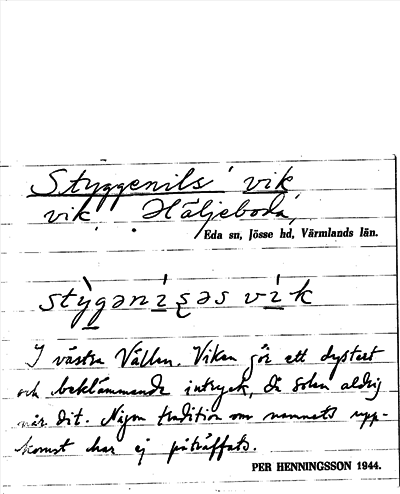 Styggenils' vik
vik, Häljeboda,
Eda sn, Jösse hd, Värmlands län.
stỳgənìʂəs vìk
I västra Vällen. Viken gör ett dystert
och beklämmande intryck, då solen aldrig
når dit. Någon tradition om namnets upp-
komst har ej påträffats.
PER HENNINGSSON 1944.